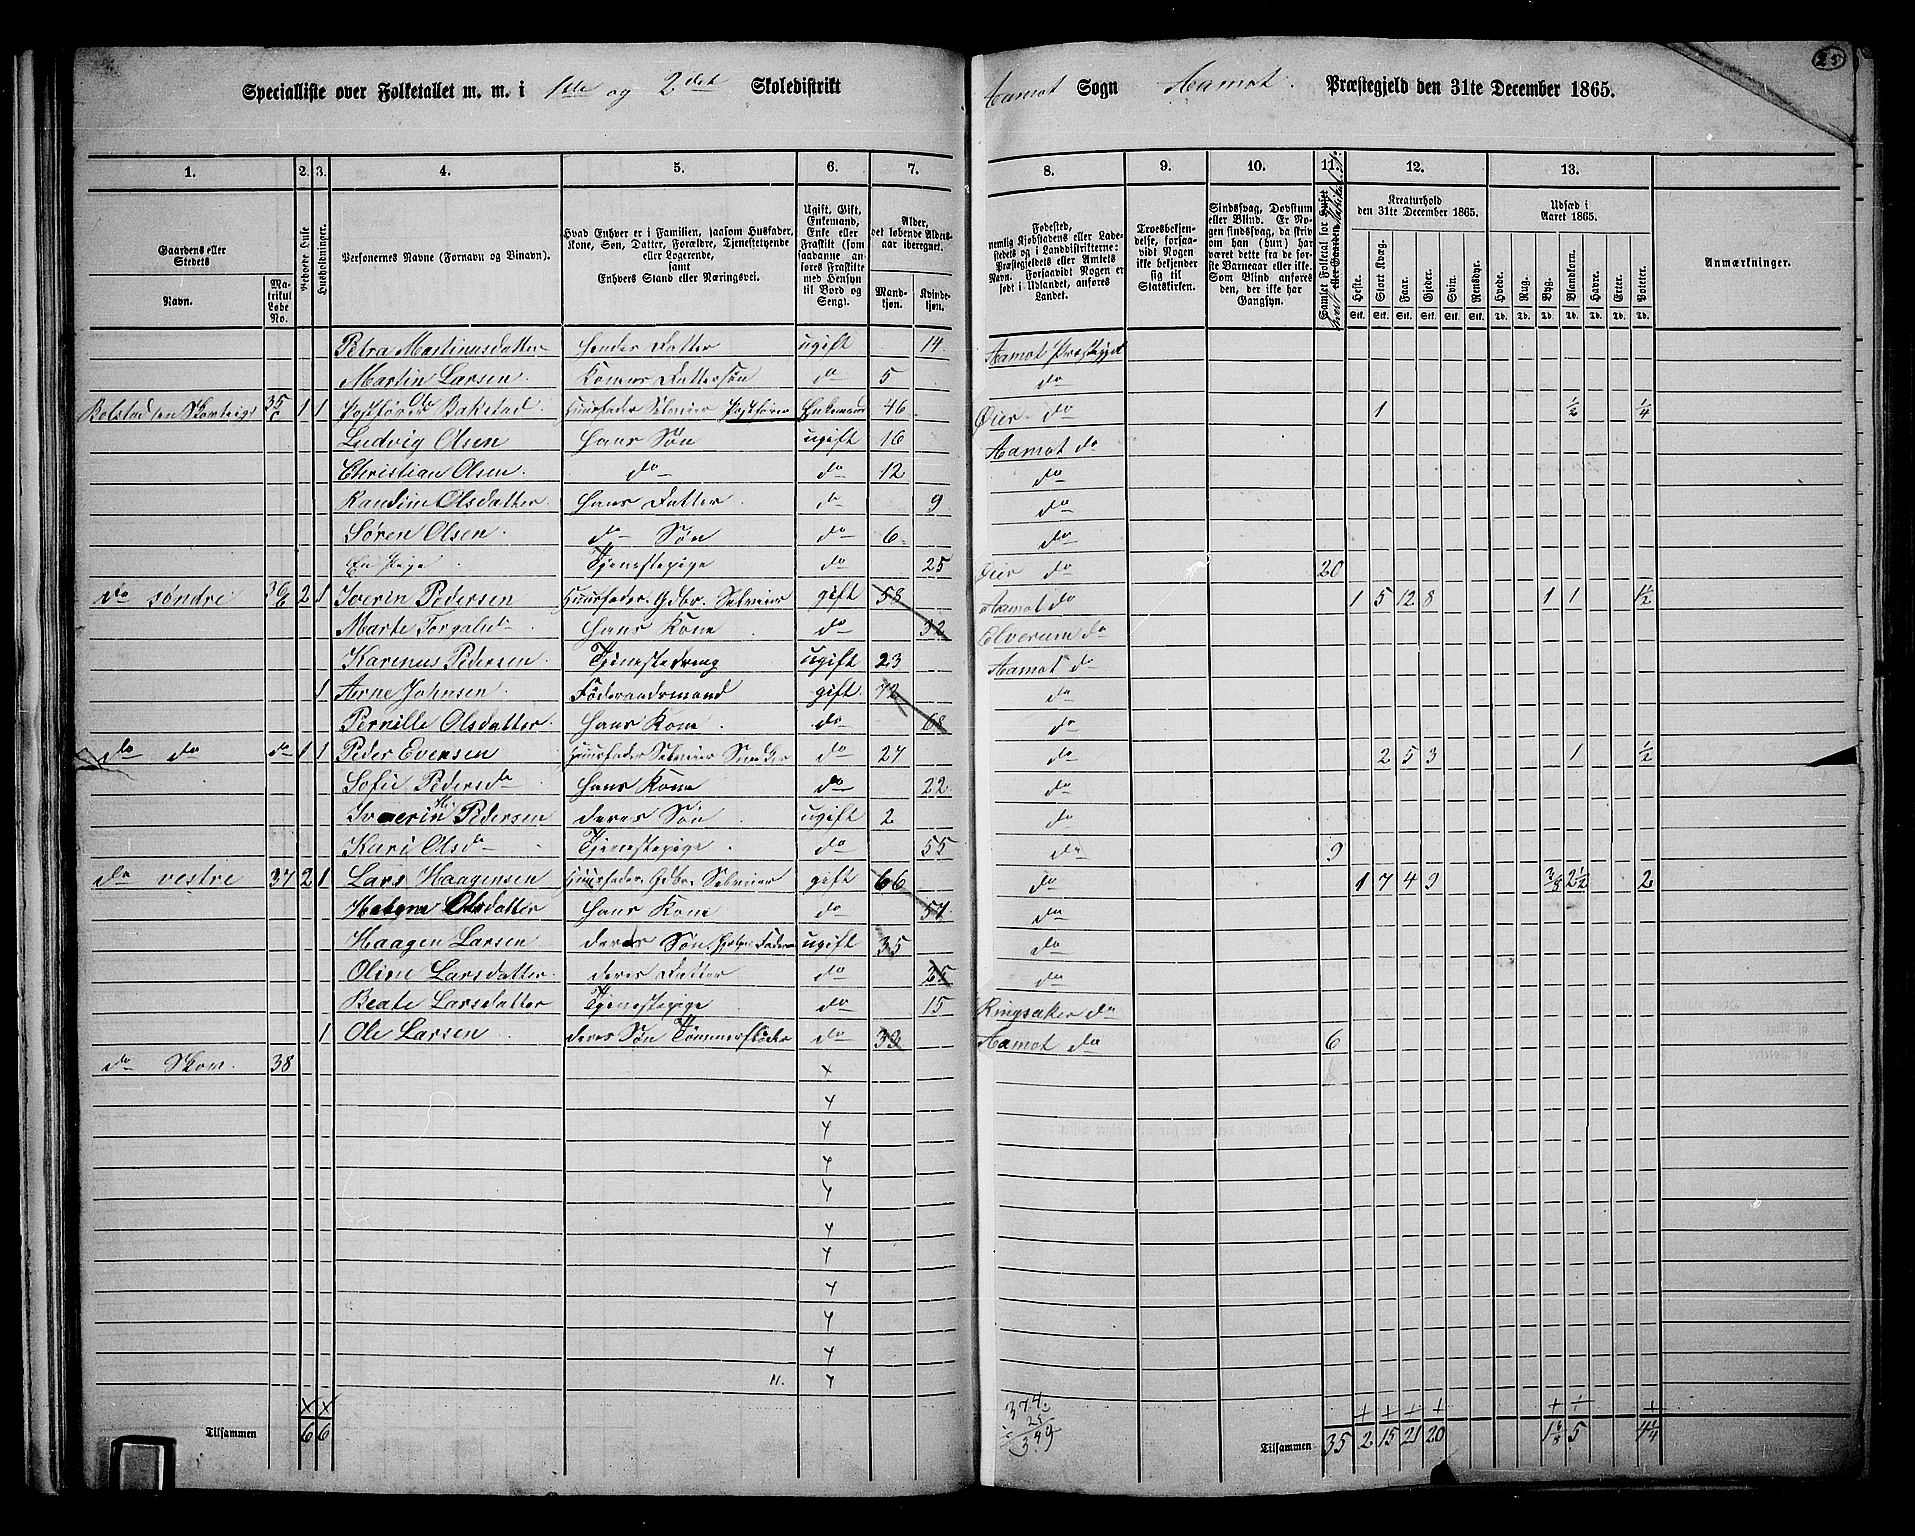 25
Specialliste over Folketallet m. m. i 1ste og 2det Skoledistrikt Aamot Sogn Aamot Præstegjeld den 31te December 1865.
1. 2. 3. 4. 5. 6. 7. 8. 9. 10. 11. 12. 13.
Gaardens eller Stedets
Navn. Matrikul Løbe No.
Beboede Huse
Husholdninger.
Personernes Navne (Fornavn og Binavn).
Hvad Enhver er i Familien, saasom Husfader, Kone, Søn, Datter, Forældre, Tjenestetyende eller Logerende, samt Enhvers Stand eller Næringsvei.
Ugift, Gift, Enkemand, Enke eller Fraskilt (som saadanne anføres Fraskilte med Hensyn til Bord og Seng).
Alder, det løbende Aldersaar iberegnet.
Mandkjøn. Kvindekjøn.
Fødested, nemlig Kjøbstadens eller Ladestedets og i Landdistrikterne: Præstegjeldets eller Amtets Navn. Forsaavidt Nogen er født i Udlandet, anføres Landet.
Troesbekjendelse, forsaavidt Nogen ikke bekjender sig til Statskirken.
Sindssvag, Døvstum eller Blind. Er Nogen sindssvag, da skriv om han (hun) har været dette fra de første Barneaar eller ikke. Som Blind anføres den, der ikke har Gangsyn.
Samlet Folketal for
Kreaturhold den 31te December 1865.
Heste. Stort Kvæg. Faar. Gjeder. Svin. Rensdyr.
Stk. Stk. Stk. Stk. Stk. Stk.
Udsæd i Aaret 1865.
Hvede. Rug. Byg. Blandkorn. Havre. Erter. Poteter.
Td. Td. Td. Td. Td. Td. Td.
Anmærkninger.
Petra Martinusdatter hendes Datter ugift 14 Aamot Præstegjel
Martin Larsen Konens Dattersøn do 5 do
Bolstad 35 c 1 1 Postfører Ole Bakstad Huusfader Selveier Postfører Enkemand 46 Øier do 1 1/2 1/4
Ludvig Olsen hans Søn ugift 16 Aamot do
Christian Olsen do do 12 do
Randine Olsdatter hans Datter do 9 do
Søren Olsen do Søn do 6 do
En Pige Tjenestepige do 25 Øier do 20
do søndre 36 2 1 Iverin Pedersen Huusfader Gdbr. Selveier gift 58 Aamot do 1 5 12 8 1 1 1½
Marte Torgalsd hans Kone do 52 Elverum do
Karenus Pedersen Tjenestedreng ugift 23 Aamot do
1 Arne Johnsen Føderaadsmand gift 72 do
Pernille Olsdatter hans Kone do 68 do
do do do 1 1 Peder Evensen Huusfader Selveier do 27 do 2 5 3 1 1/2
Sofie Pedersda hans Kone do 22 do
Pedersen deres Søn ugift 2 do
Kari Olsda Tjenestepige do 55 do 9
do vestre 37 2 1 Lars Haagensen Huusfader Gdbr. Selveier gift 66 do 1 7 4 9 3/8 2½ 2
Olsdatter hans Kone do 57 do
Haagen Larsen deres Søn ugift 35 do
Oline Larsdatter deres Datter do 25 do
Beate Larsdatter Tjenestepige do 15 Ringsaker do
1 Ole Larsen deres Søn Tømmerfløder do 33 Aamot do 6
do Skov 38
Tilsammen 6 6
374
25
349
Tilsammen 35 2 15 21 20 5